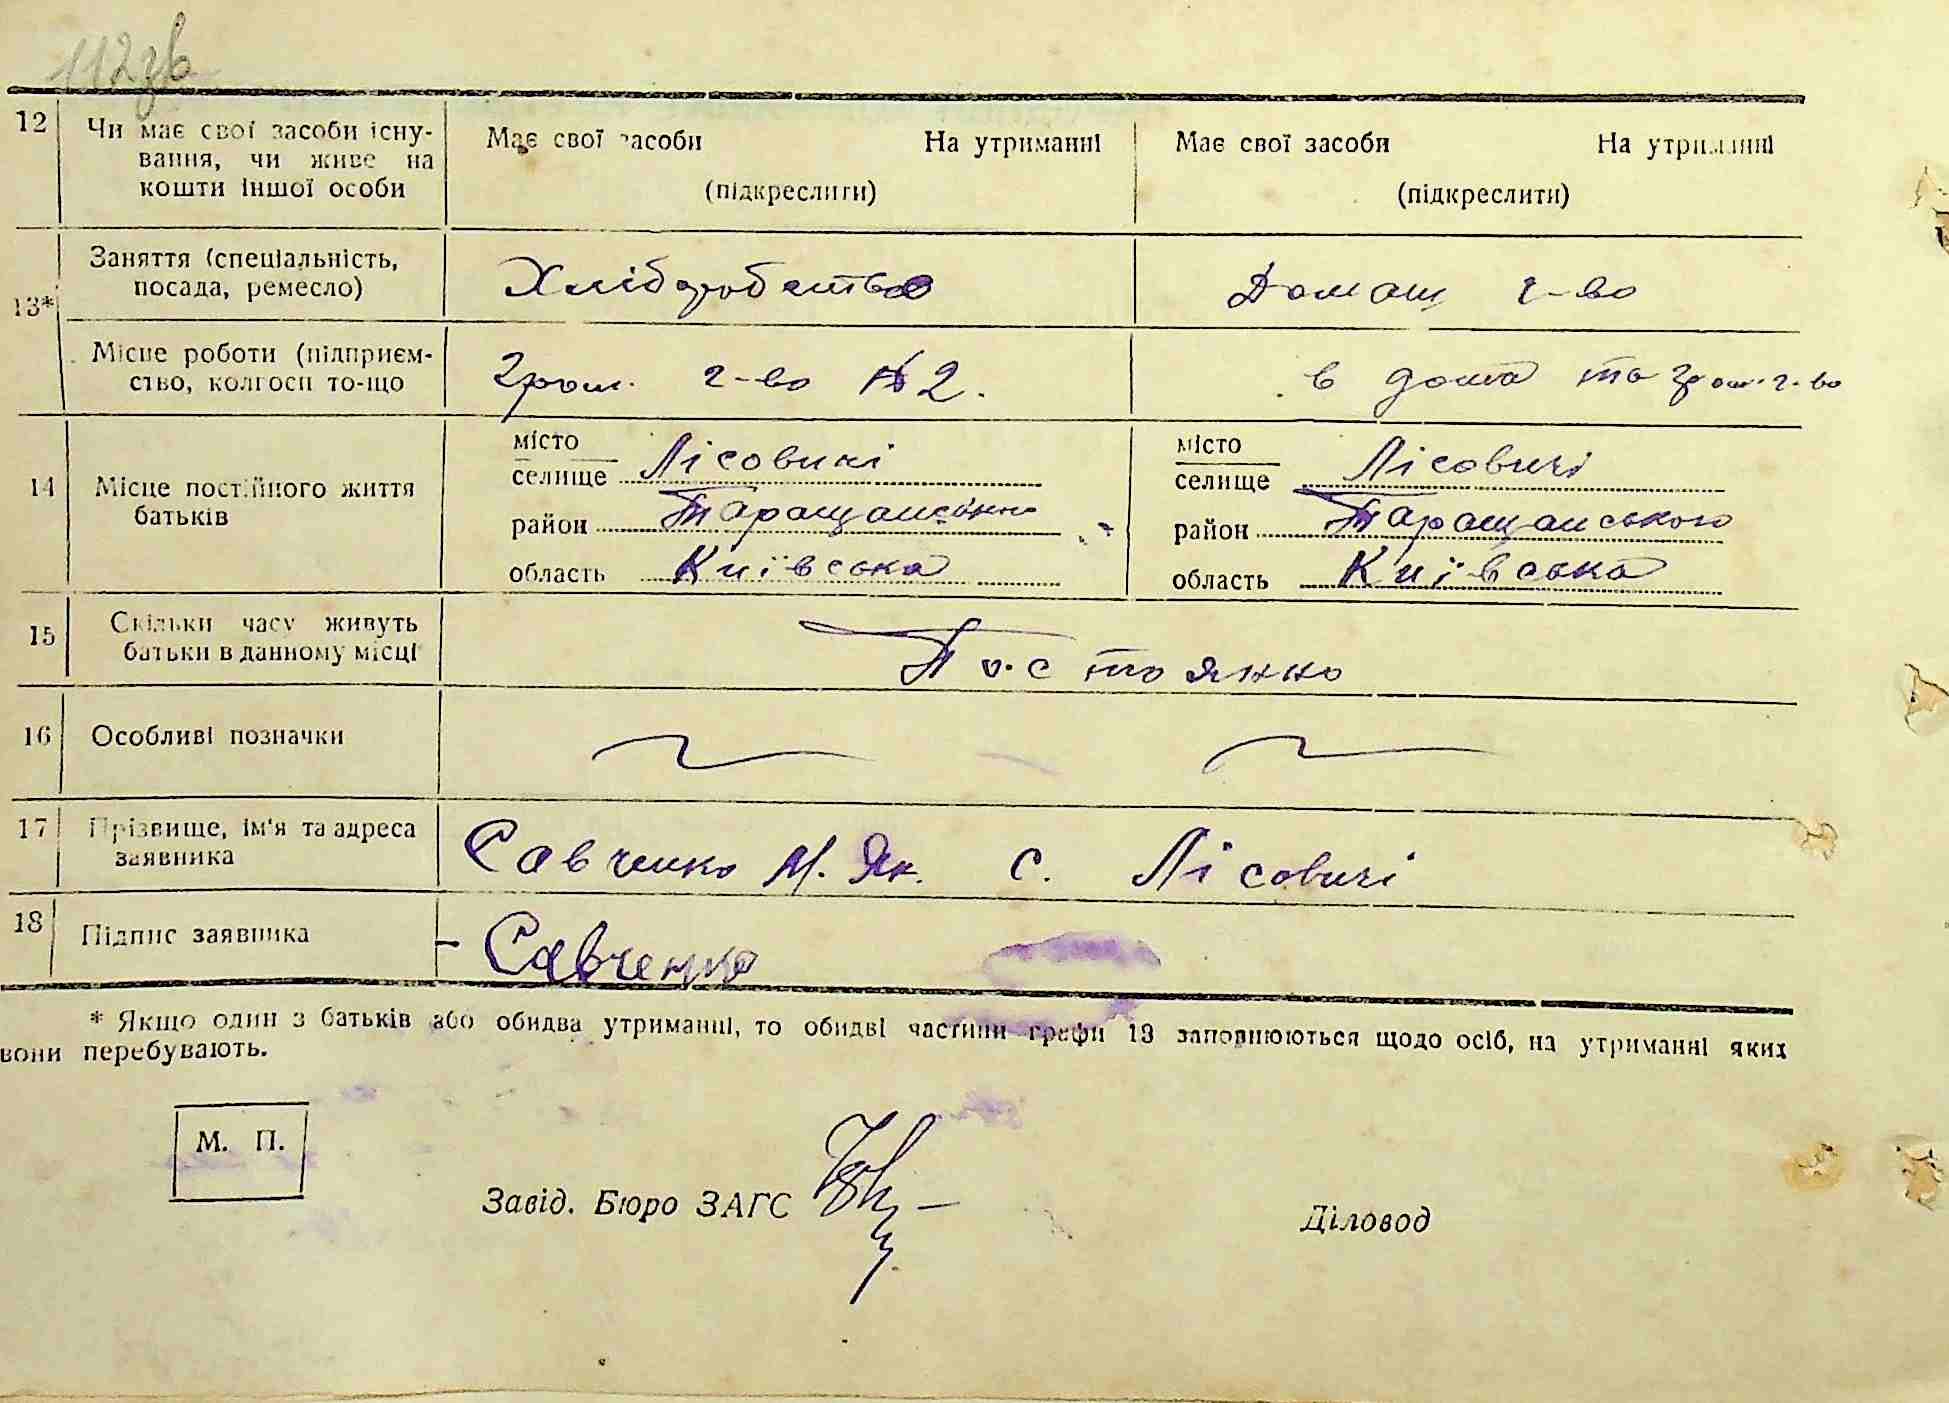 112зв
12 Чи має свої засоби існу-
вання, чи живе на
кошти іншої особи
Має свої засоби На утриманні
(підкреслити)
Має свої засоби На утриманні
(підкреслити)
13*
Заняття (спеціальність,
посада, ремесло)
Хліборобство
Домаш г-во
Місце роботи (підприєм-
ство, колгосп то-що
Гром. г-во №2.
в дома та гром. г-во
14 Місце постійного життя
батьків
місто
селище Лісовичі
район Таращанськ
область Київська
місто
селище Лісовичі
район Таращанського
область Київська
15 Скільки часу живуть
батьки в данному місці
Постоянно
16 Особливі позначки
17 Прізвище, ім'я та адреса
заявника
Савченко М. Як. с. Лісовичі
18 Підпис заявника
Савченко
* Якщо один з батьків або обидва утриманні, то обидві частини графи 13 заповнюються щодо осіб, на утриманні яких
вони перебувають.
М. П.
Завід. Бюро ЗАГС
Діловод